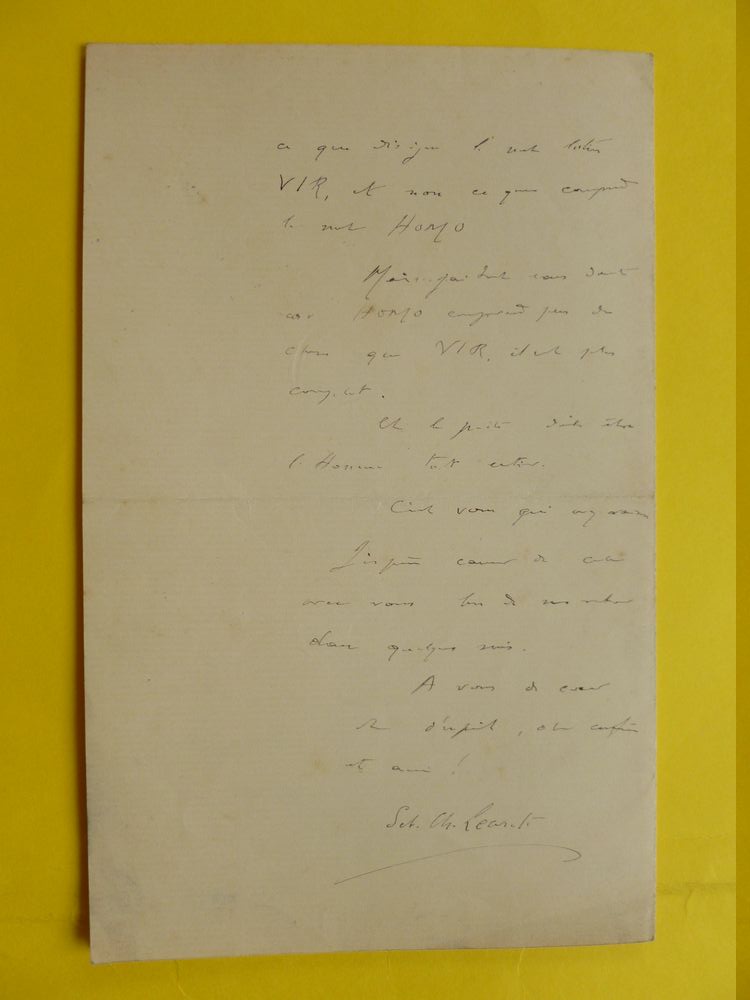 ce que désigne le mot latin
VIR, et non ce que comprend
le mot HOMO
Mais
car HOMO comprend plus de
chose que VIR, il est plus
complet.
Et le poète doit être
l'Homme tout entier.
C'est vous qui avez raison
J'espère causer de cela
avec vous lors de mon retour
dans quelques mois.
A vous de coeur
et d'esprit, cher confrère
et ami !
Seb. Ch. Leconte